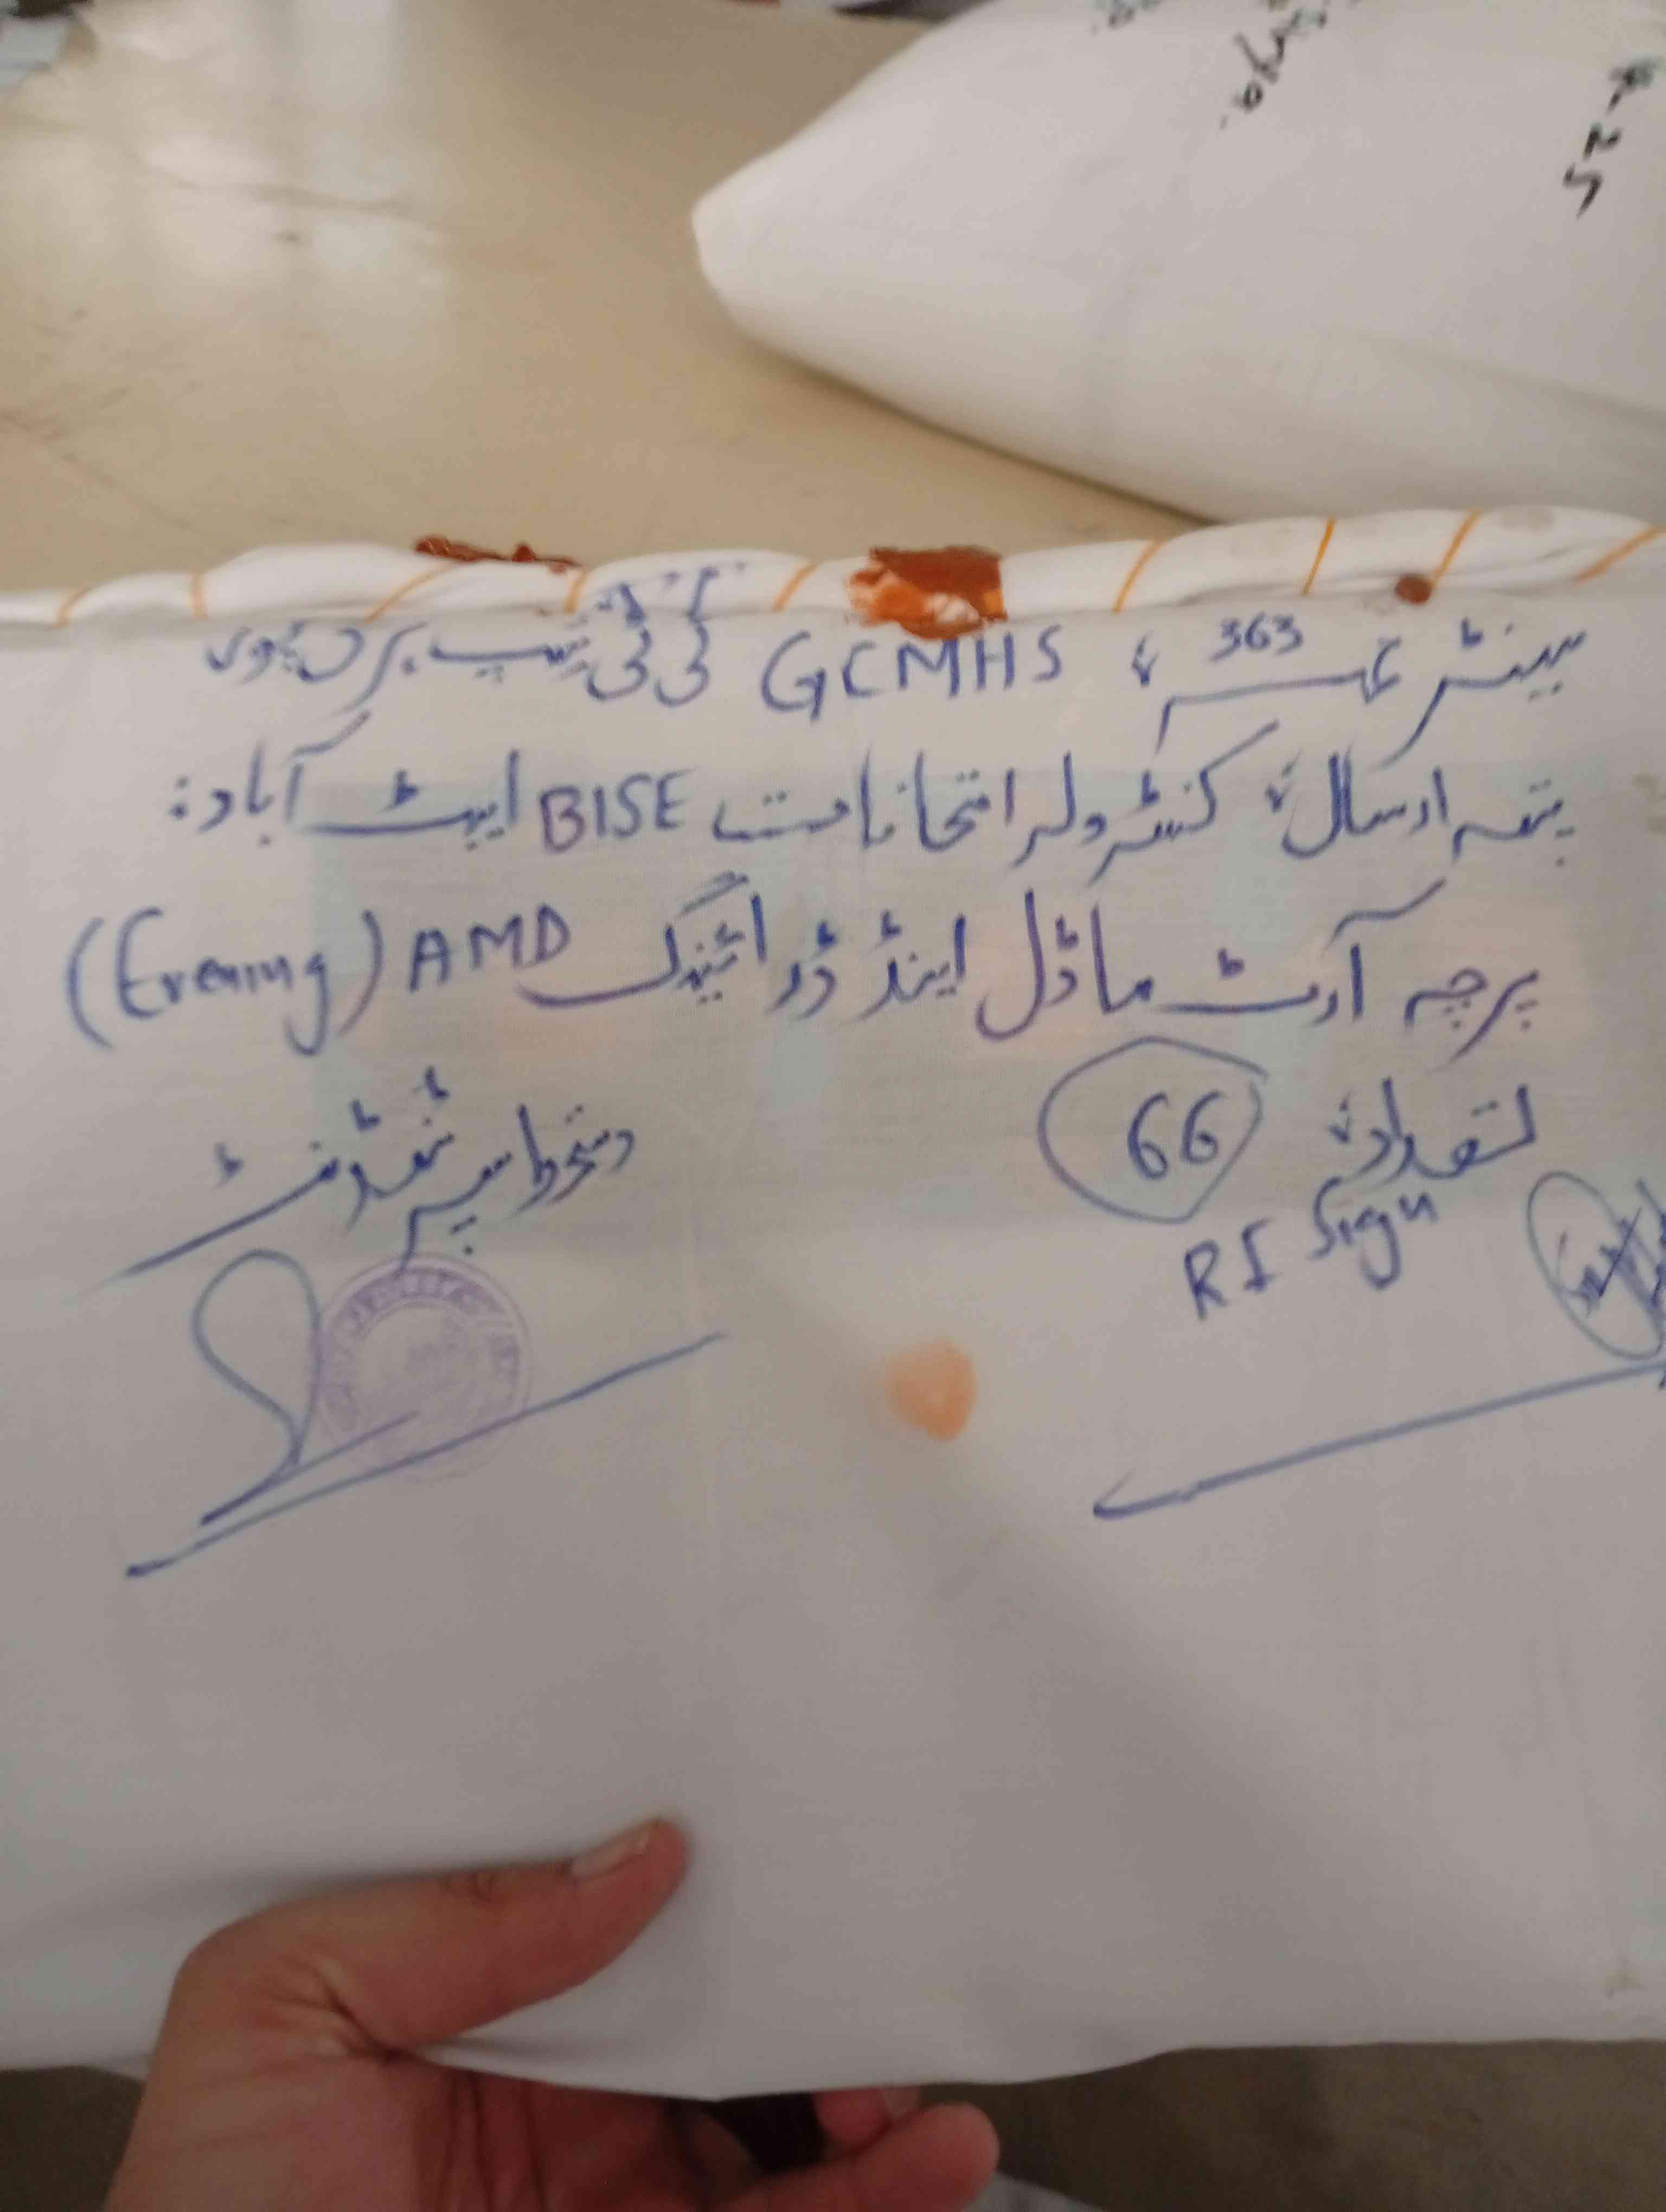 سینٹر نمبر 363 ، GCMHS ٹی ٹی پی
پتہ ارسال: کنٹرولر امتحانات BISE ایبٹ آباد:
پرچہ آرٹ ماڈل اینڈ ڈرائینگ AMD (Evening)
تعداد: 66
دستخط سپرنٹنڈنٹ
RI Sign